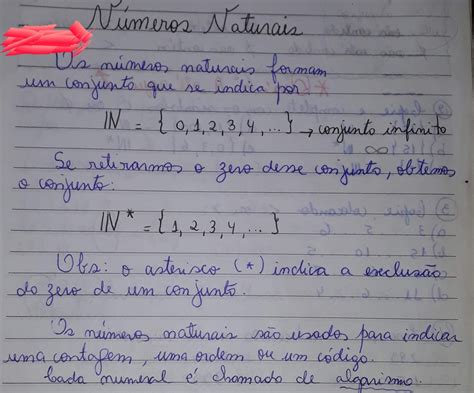 Números Naturais
Os números naturais formam
um conjunto que se indica por
IN = { 0, 1, 2, 3, 4, ... } → conjunto infinito
∞
Se retirarmos o zero desse conjunto, obtemos
o conjunto:
IN* = { 1, 2, 3, 4, ... }
Obs: o asterisco (*) indica a exclusão
do zero de um conjunto.
Os números naturais são usados para indicar
uma contagem, uma ordem ou um código.
Cada numeral é chamado de algarismo.